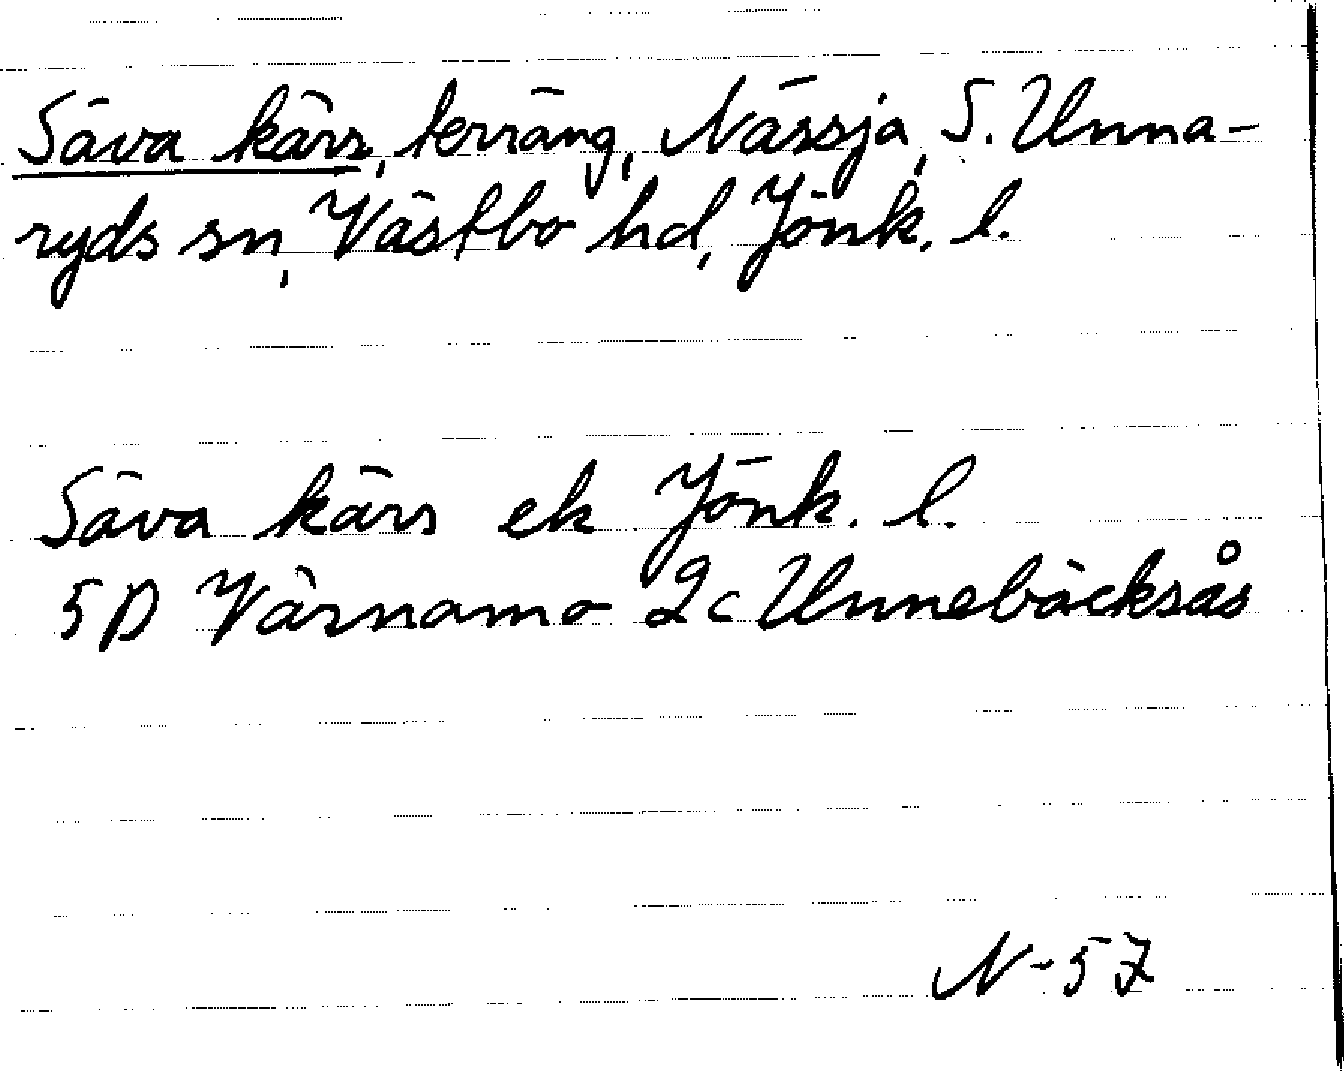 Säva kärr, terräng, Nässja, S. Unna-
ryds sn, Västbo hd, Jönk. l.
Säva kärr ek Jönk. l.
5D Värnamo 2c Unnebäcksås
N-57